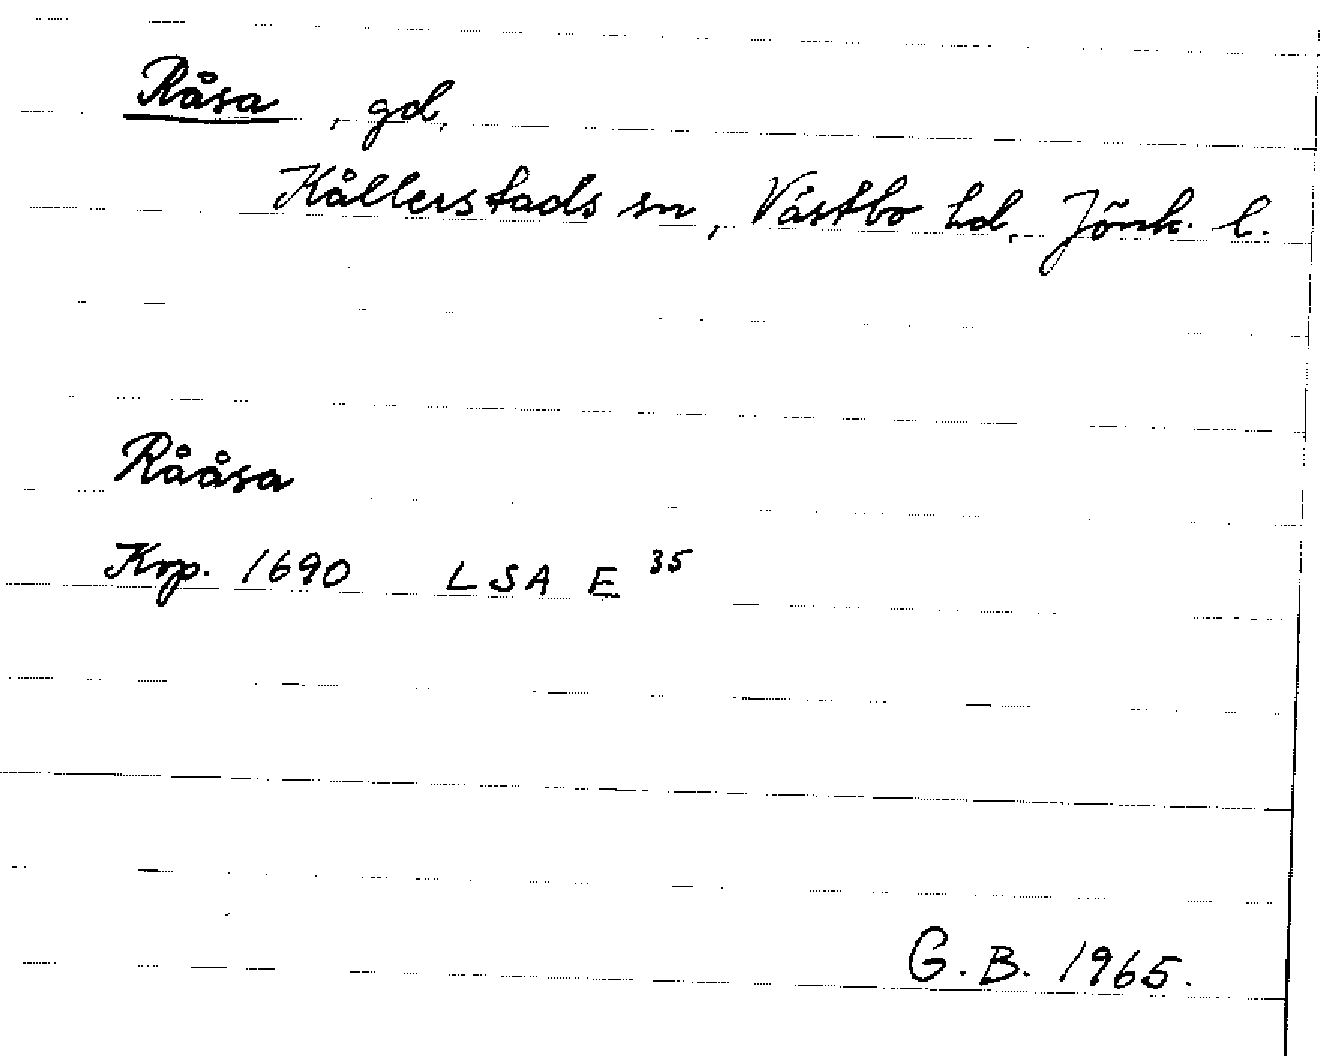 Råsa, gd,
Kållerstads sn, Västbo hd, Jönk. l.
Rååsa
Krp. 1690 LSA E 35
G.B. 1965.